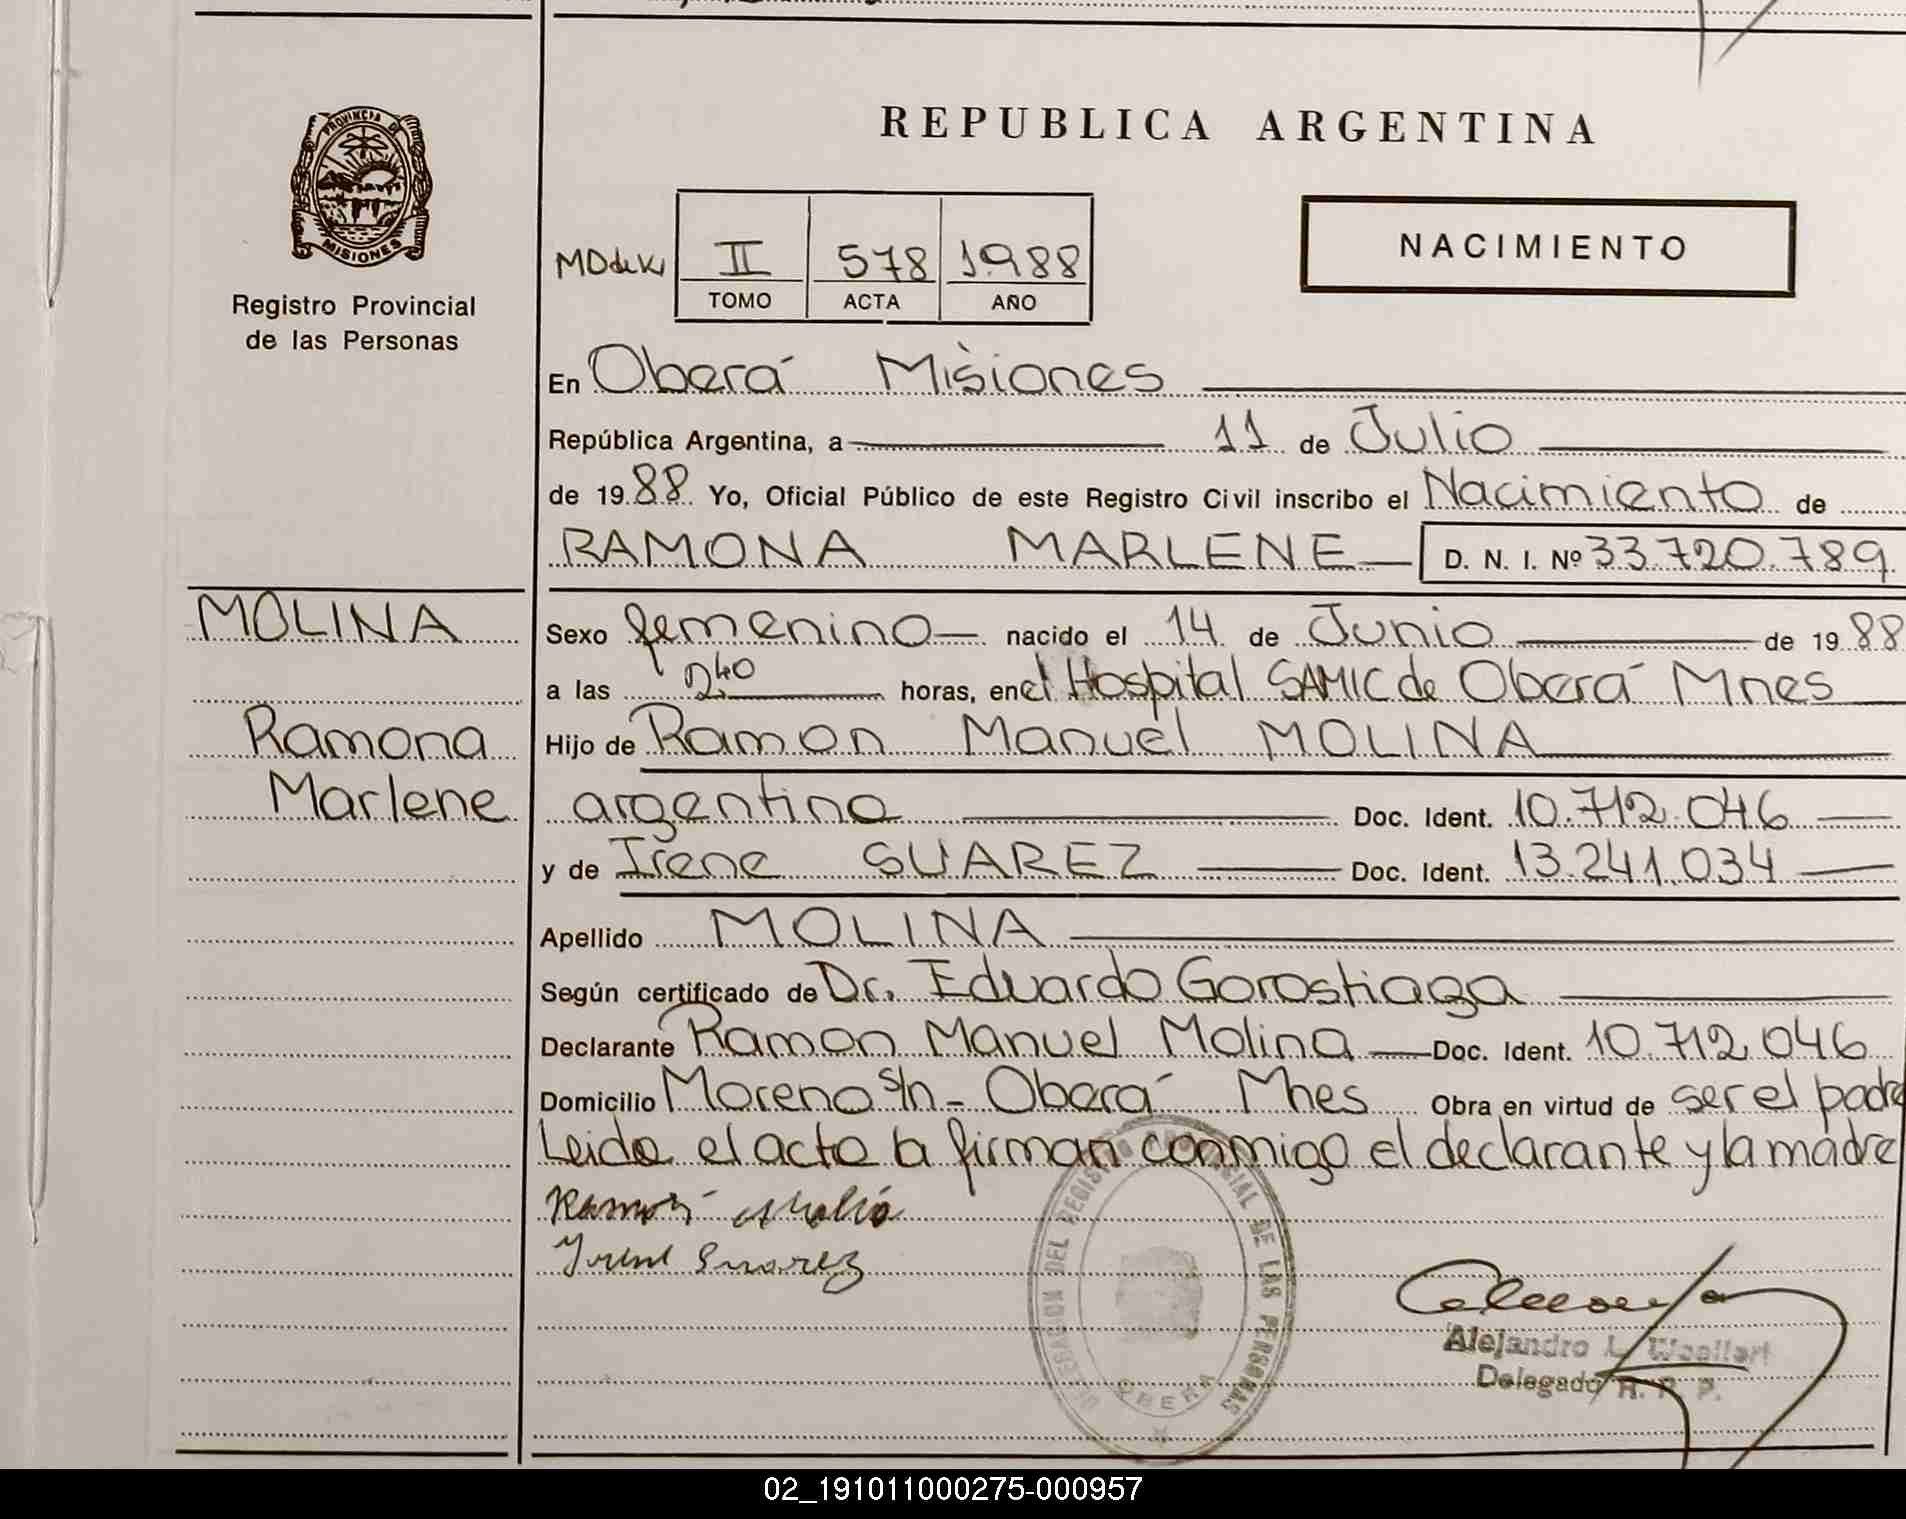 PROVINCIA DE
MISIONES
Registro Provincial
de las Personas
REPUBLICA ARGENTINA
NACIMIENTO
II 578 1.988
TOMO ACTA AÑO
En Oberá Misiones
República Argentina, a 11 de Julio
de 19 88 Yo, Oficial Público de este Registro Civil inscribo el Nacimiento de
RAMONA MARLENE D. N. I. Nº 33.720.789
MOLINA
Ramona
Marlene
Sexo femenino nacido el 14 de Junio de 19 88
a las 2,40 horas, en el Hospital SAMIC de Oberá Mnes
Hijo de Ramon Manuel MOLINA
argentino Doc. Ident. 10.712.046
y de Irene SUAREZ Doc. Ident. 13.241.034
Apellido MOLINA
Según certificado de Dr. Eduardo Gorostiaga
Declarante Ramon Manuel Molina Doc. Ident. 10.712.046
Domicilio Moreno s/n - Oberá Mnes Obra en virtud de ser el padre
Leida el acta la firman conmigo el declarante y la madre
Ramón
Irene Suarez
DELEGACION DEL REGISTRO PROVINCIAL DE LAS PERSONAS
OBERA
Alejandro L.
Delegado R. P. P.
02_191011000275-000957